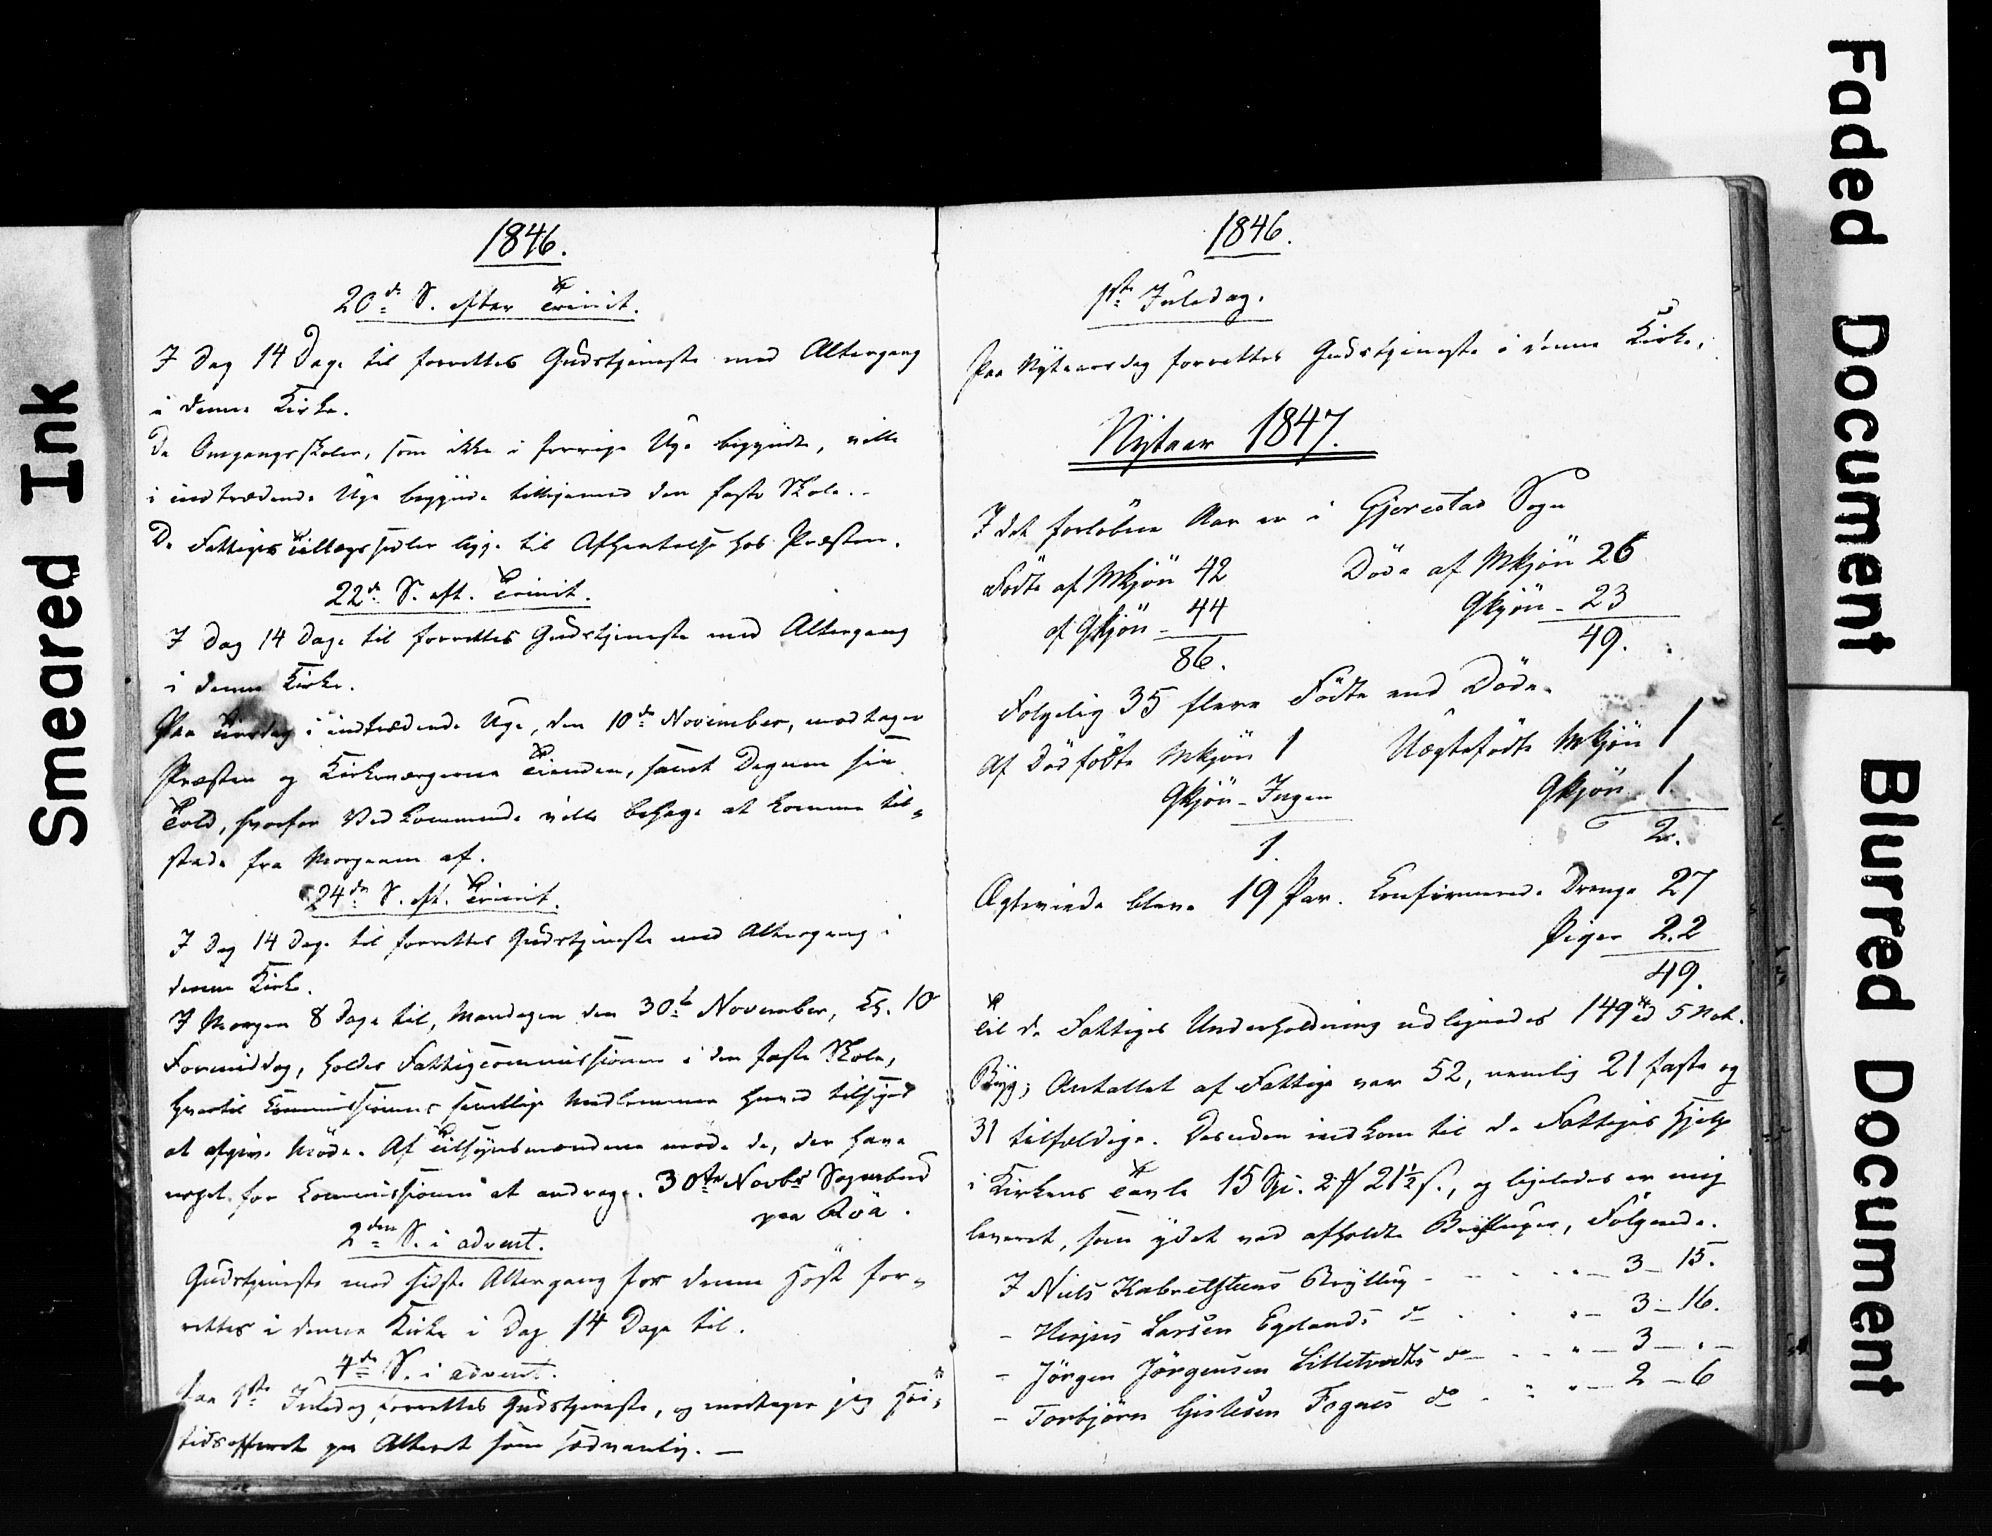 Smeared Ink
1846.
20de S. efter Trinit.
I Dag 14 Dage til forrettes Gudstjeneste med Altergang
i denne Kirke.
De Omgangsskoler, som ikke i forrige Uge begyndte, ville
i indtrædende Uge begynde tilligemed den faste Skole.
De Fattiges Tillægssedler ligge til Afhentelse hos Præsten.
22de S. eft. Trinit.
I Dag 14 Dage til forrettes Gudstjeneste med Altergang
i denne Kirke.
Paa Tirsdag i indtrædende Uge, den 10de November, modtager
Præsten og Kirkeværgerne Tienden, samt Degnen sin
Told, hvorfor Vedkommende ville behage at komme til-
stede fra Morgenen af.
24de S. eft. Trinit.
I Dag 14 Dage til forrettes Gudstjeneste med Altergang i
denne Kirke.
I Morgen 8 Dage til, Mandagen den 30te November, Kl. 10
Formiddag, holdes Fattigcommissionen i den faste Skole,
hvortil Commissionens samtlige Medlemmer herved tilsiges
at afgive Møde. Af Tilsynsmændene møde de, der have
noget for Commissionen at andrage. 30te Novbr Sognebud
paa Röa.
2den S. i advent.
Gudstjeneste med sidste Altergang for denne Høst for-
rettes i denne Kirke i Dag 14 Dage til.
4de S. i advent.
Paa 1ste Juledag forrettes Gudstjeneste, og modtager jeg Høi-
tidsofferet paa Alteret som sædvanlig. —
1846.
1ste Juledag.
Paa Nytaarsdag forrettes Gudstjeneste i denne Kirke.
Nytaar 1847.
I det forløbne Aar er i Gjerestad Sogn
Fødte af Mkjön 42 Døde af Mkjön 26
af Qkjön - 44 Qkjön - 23
86. 49.
Følgelig 35 flere Fødte end Døde.
Af Dödfödte Mkjön 1 Uægtefödte Mkjön 1
Qkjön - Ingen Qkjön 1.
1. 2.
Ægteviede bleve 19 Par. Confirmerede Drenge 27
Piger 22
49.
Til de Fattiges Underholdning udlignedes 149 5
Byg; Antallet af Fattige var 52, nemlig 21 faste og
31 tilfældige. Desuden indkom til de Fattiges Hjelp
i Kirkens Tavle 15 Spd. 2 # 21½ s., og ligeledes er mig
leveret, som ydet ved afholdte Brylluper, Følgende.
I Niels Kabrelsteens Bryllup - - - 3 - 15.
- Larsen Egelands do - - 3 - 16.
- Jörgen Jörgensen Lilletvedts do - - 3 - -
- Torbjörn Gislesen Fognes do - - 2 - 6
Faded Document
Blurred Document